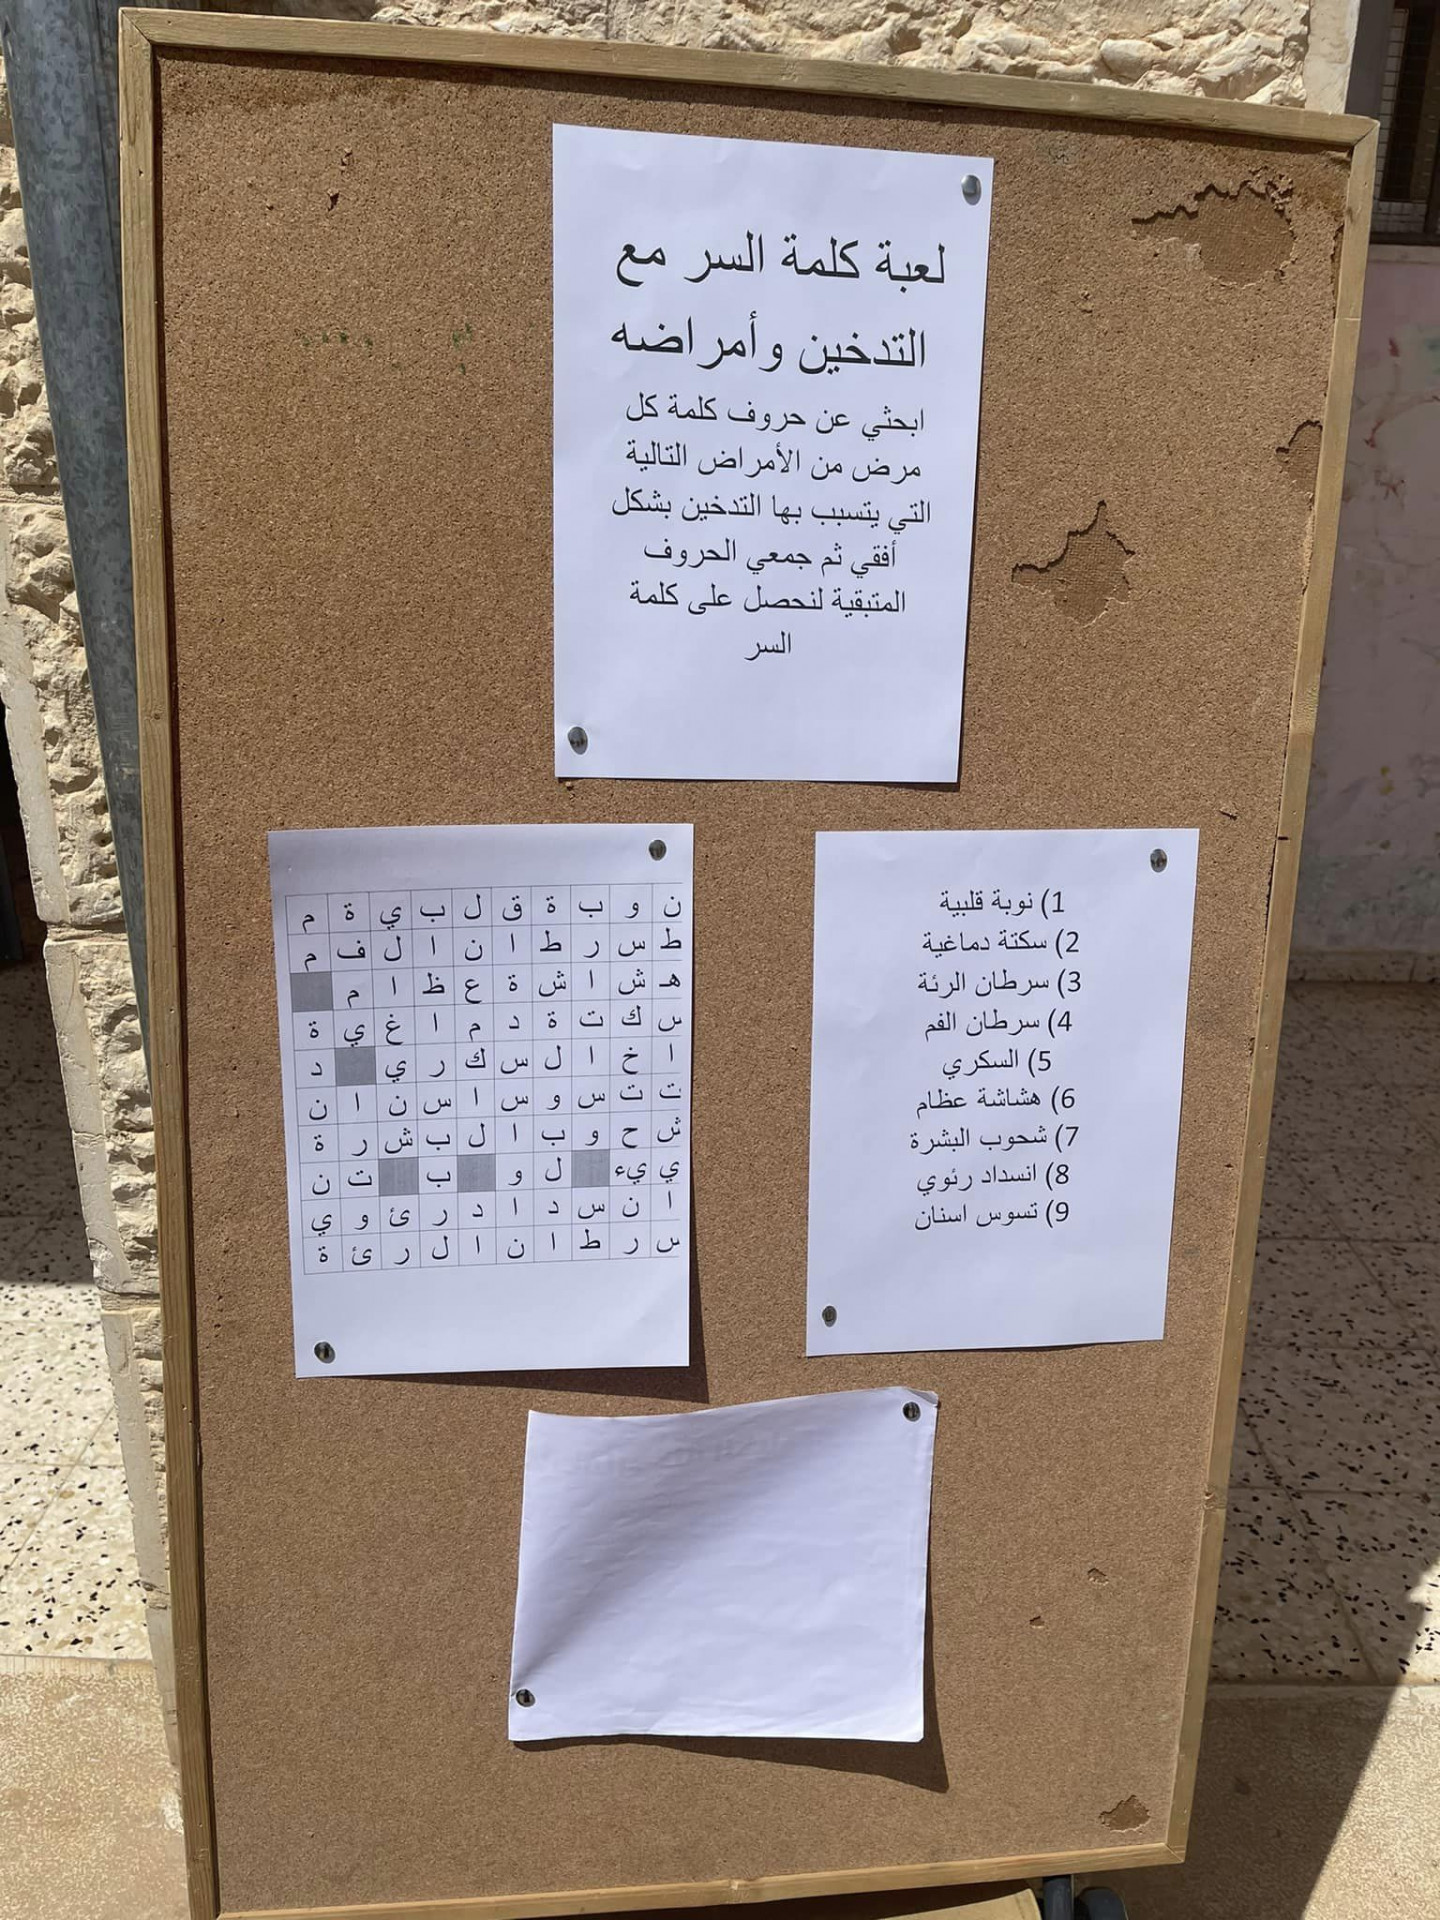 لعبة كلمة السر مع
التدخين وأمراضه
ابحثي عن حروف كلمة كل
مرض من الأمراض التالية
التي يتسبب بها التدخين بشكل
أفقي ثم جمعي الحروف
المتبقية لنحصل على كلمة
السر
ن و ب ة ق ل ب ي ة م
ط س ر ط ا ن ا ل ف م
هـ ش ا ش ة ع ظ ا م
س ك ت ة د م ا غ ي ة
ا خ ا ل س ك ر ي د
ت ت س و س ا س ن ا ن
ش ح و ب ا ل ب ش ر ة
ي يء ل و ب ت ن
ا ن س د ا د ر ئ و ي
س ر ط ا ن ا ل ر ئ ة
1) نوبة قلبية
2) سكتة دماغية
3) سرطان الرئة
4) سرطان الفم
5) السكري
6) هشاشة عظام
7) شحوب البشرة
8) انسداد رئوي
9) تسوس اسنان